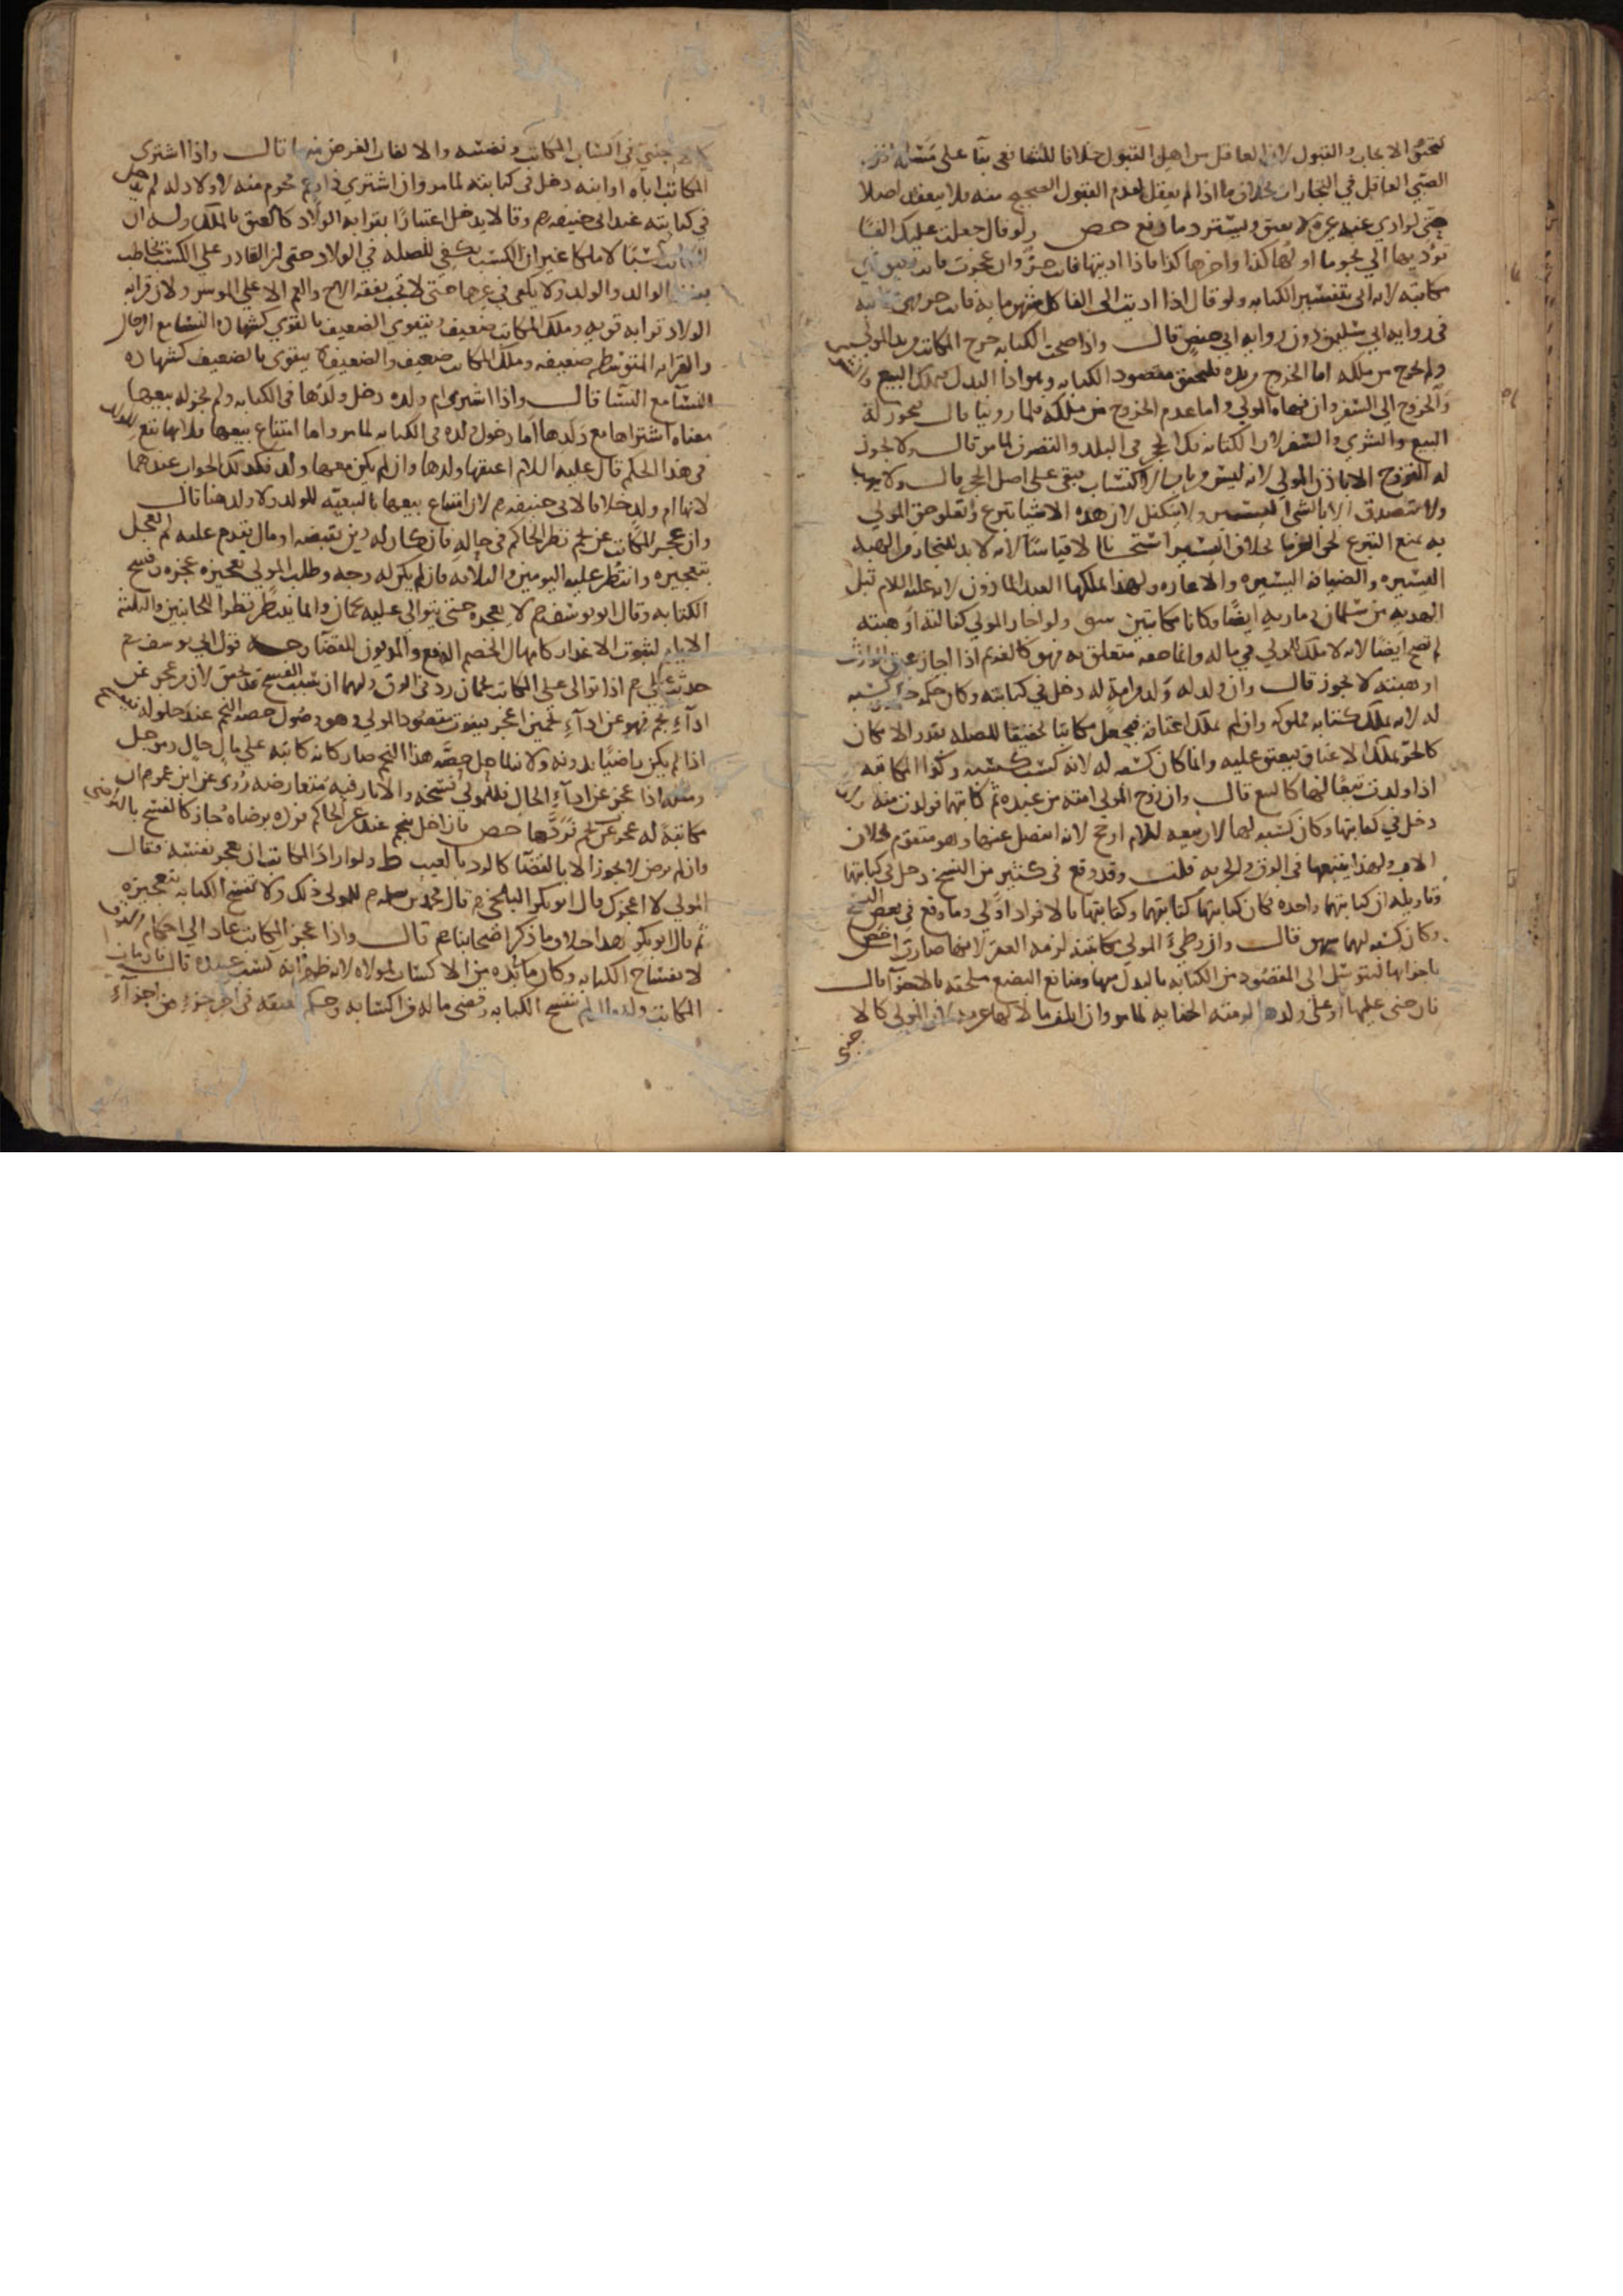 لتحقق الايجاب والقبول لان العاقل من اهل القبول خلافا للشافعي بنا على مسئلة اذن
الصبي العاقل في التجارات بخلاف ما اذا لم يعقل لعدم القبول الصحيح منه فلا ينعقد اصلا
حتى لو ادي عنه غيره لا يعتق ويسترد ما دفع حص ولو قال جعلت عليك الفا
تؤديها الي نجوما اولها كذا واخرها كذا فاذا اديتها فانت حر وان عجزت فانت رقيق
مكاتبه لانه اتى بتفسير الكتابه ولو قال اذا اديت الى الفا كل شهر مايه فانت حر فهي مكاتبه
في روايه ابي سليمن دون روايه ابي حفص قال واذا صحت الكتابه خرج المكاتب من يد المولى
ولم يخرج من ملكه اما الخروج من يده فلتحقق مقصود الكتابه وهو اداء البدل فيملك البيع والشرا
والخروج الى السفر وان نهاه المولى واما عدم الخروج من ملكه فلما روينا قال فيجوز له
البيع والشري والسفر لان الكتابه فك الحجر في البلد والتصرف لما مر قال ولا يجوز
له التزوج الا باذن المولى لانه ليس من باب الاكتساب فبقي على اصل الحجر قال ولا يهب
ولا يتصدق الا بالشي اليسير ولا يتكفل لان هذه الاشيا تبرع وتعلق حق المولى
به يمنع التبرع لحق الغرما بخلاف اليسير استحسانا لا قياسا لانه لا بد للتجار من الهبه
اليسيره والضيافه اليسيره والاعاره ولهذا يملكها العبد الماذون لانه عليه السلام قبل
الهديه من سلمان ومن بريره ايضا وكانا مكاتبين سبق ولو اجاز المولى كفالته او هبته
لم تصح ايضا لانه لا ملك للمولى في ماله وانما حقه متعلق به فهو كالغريم اذا اجاز عتق الوارث
او هبته لا يجوز قال وان ولد له ولد من امة له دخل في كتابته وكان حكمه كحكمه وكسبه
له لانه يملك كتابة مملوكه وان لم يملك اعتاقه فيجعل مكاتبا تحقيقا للصله بقدر الامكان
كالحر يملك الاعتاق فيعتق عليه وانما كان كسبه له لانه كسب كسبه وكذا المكاتبه
اذا ولدت تبعا لها كالبيع قال وان زوج المولى امته من عبده ثم كاتبهما فولدت منه
دخل في كتابتها وكان كسبه لها لان تبعيه الام ارجح لانه انفصل عنها وهو متقوم بخلاف
الاب ولهذا يتبعها في الرق والحريه قلت وقد وقع في كثير من النسخ دخل في كتابتهما
وتاويله ان كتابتهما واحده فكان كتابتها كتابتهما وكتابتها بالافراد اولى وما وقع في بعض النسخ
وكان كسبه لهما سهو قال وان وطئ المولى مكاتبته لزمه العقر لانها صارت اخص
باجزائها لتتوسل الى المقصود من الكتابه بالبدل منها ومنافع البضع ملحقه بالاجزا قال
فان جنى عليها او على ولدها لزمته الجنايه لما مر وان اتلف مالا لها غرم لان المولى كالا
جنبي
كالاجنبي في اكتساب المكاتب ونفسه والا لفات الغرض منها قال واذا اشترى
المكاتب اباه او ابنه دخل في كتابته لما مر وان اشترى ذا رحم محرم منه لا ولاد له لم يدخل
في كتابته عند ابي حنيفه رح وقالا يدخل اعتبارا بقرابه الولاد كالعتق بالملك وله ان
للمكاتب كسبا لا ملكا غير ان الكسب يكفي للصله في الولاد حتى ان القادر على الكسب يخاطب
بنفقه الوالد والولد ولا يكفي في غيرها حتى لا تجب نفقه الاخ والعم الا على الموسر ولان قرابه
الولاد قرابه قويه وملك المكاتب ضعيف ويتقوى الضعيف بالقوي كشهاده النسا مع الرجال
والقرابه المتوسطه ضعيفه وملك المكاتب ضعيف والضعيف لا يتقوى بالضعيف كشهاده
النسا مع النسا قال واذا اشترى ام ولده دخل ولدها في الكتابه ولم يجز له بيعها
معناه اشتراها مع ولدها اما دخول ولده في الكتابه لما مر واما امتناع بيعها فلانها تتبع الولد
في هذا الحكم قال عليه السلام اعتقها ولدها وان لم يكن معها ولد فكذلك الجواب عندهما
لانها ام ولد خلافا لابي حنيفه رح لان امتناع بيعها بالتبعيه للولد ولا ولد هنا قال
وان عجز المكاتب عن نجم نظر الحاكم في حاله فان كان له دين يقبضه او مال يقدم عليه لم يعجل
بتعجيزه وانتظر عليه اليومين والثلاثه فان لم يكن له وجه وطلب المولى تعجيزه عجزه وفسخ
الكتابه وقال ابو يوسف رح لا يعجزه حتى يتوالى عليه نجمان وانما ينتظر نظرا للجانبين والثلثة
الايام لثبوت الاعذار كامهال الخصم للدفع والمديون للقضا وجه قول ابي يوسف رح
حديث علي رضي اذا توالى على المكاتب نجمان رد في الرق ولهما ان سبب الفسخ قد تحقق لان من عجز عن
اداء نجم فهو عن اداء نجمين اعجز فيفوت مقصود المولى وهو وصول حصه النجم عند حلوله
اذا لم يكن راضيا بدونه ولانه لما حل حصه هذا النجم صار كانه كاتبه على مال حال ومن حل
ومنه اذا عجز عن اداء الحال فللمولى فسخه والاثار فيه متعارضه روى عن ابن عمر ان
مكاتبة له عجزت عن نجم فردها حص فان اخل بنجم عند غير الحاكم فرده برضاه جاز كالفسخ بالتراضي
وان لم يرض لا يجوز الا بالقضا كالرد بالعيب ط ولو اراد المكاتب ان يعجز نفسه فقال
المولى لا اعجزك قال ابو بكر البلخي رح قال محمد بن سلمه رح للمولى ذلك ولا تنفسخ الكتابه بتعجيزه
ثم قال ابو بكر هذا خلاف ما ذكر اصحابنا رح قال واذا عجز المكاتب عاد الى احكام الرق
لانفساخ الكتابه وكان ما في يده من الاكساب لمولاه لانه ظهر انه كسب عبده قال فان مات
المكاتب وله مال لم تنفسخ الكتابه وقضى ما له من اكتسابه وحكم بعتقه في اخر جزء من اجزاء